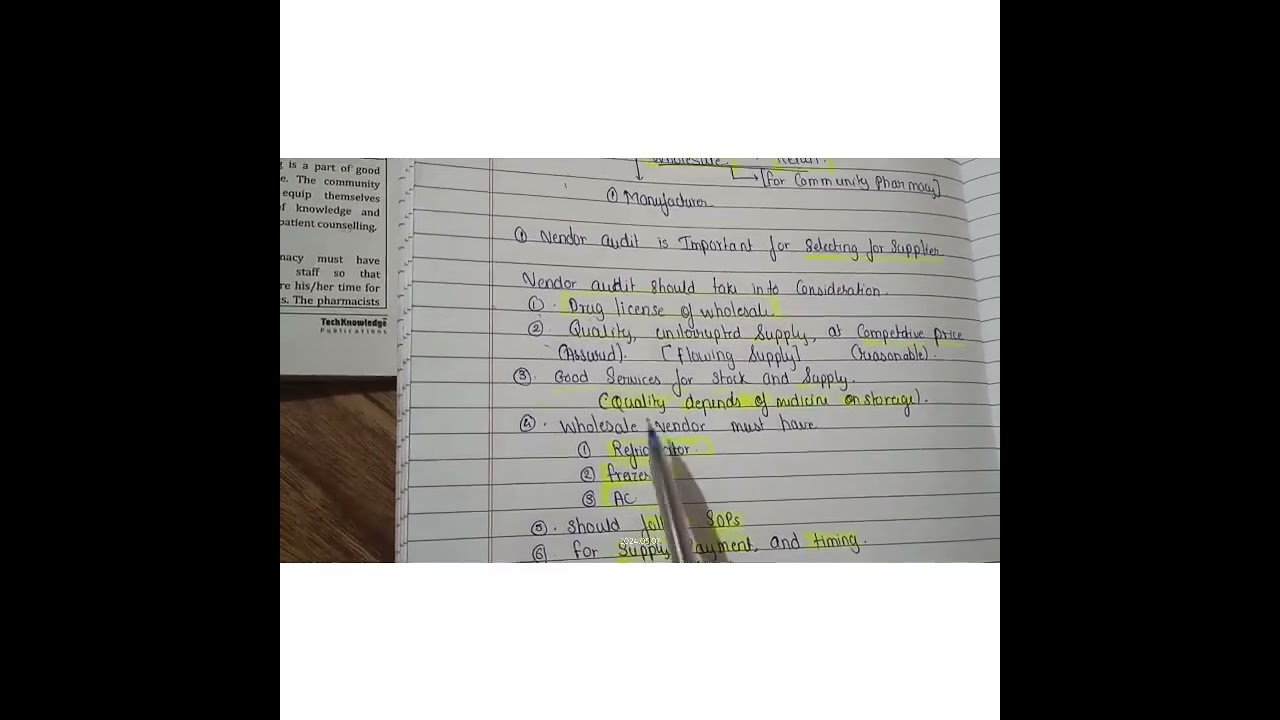 g is a part of good
e. The community
equip themselves
f knowledge and
patient counselling.
macy must have
staff so that
re his/her time for
s. The pharmacists
TechKnowledge
Publications
Wholesale Retail.
[for Community Pharmacy]
① Manufacturer
① Vendor audit is Important for Selecting for Supplier
Vendor audit should take into Consideration.
① Drug license of wholesale
② Quality, Supply, at Competitive price
(Assured). [Flowing Supply] (reasonable).
③ Good Services for stock and Supply.
(Quality depends of medicine on storage).
④ Wholesale Vendor must have
① Refrig ator.
② frezer
③ AC.
⑤ should foll SOPs
⑥ for Supply ayment and timing.
2024.05.02